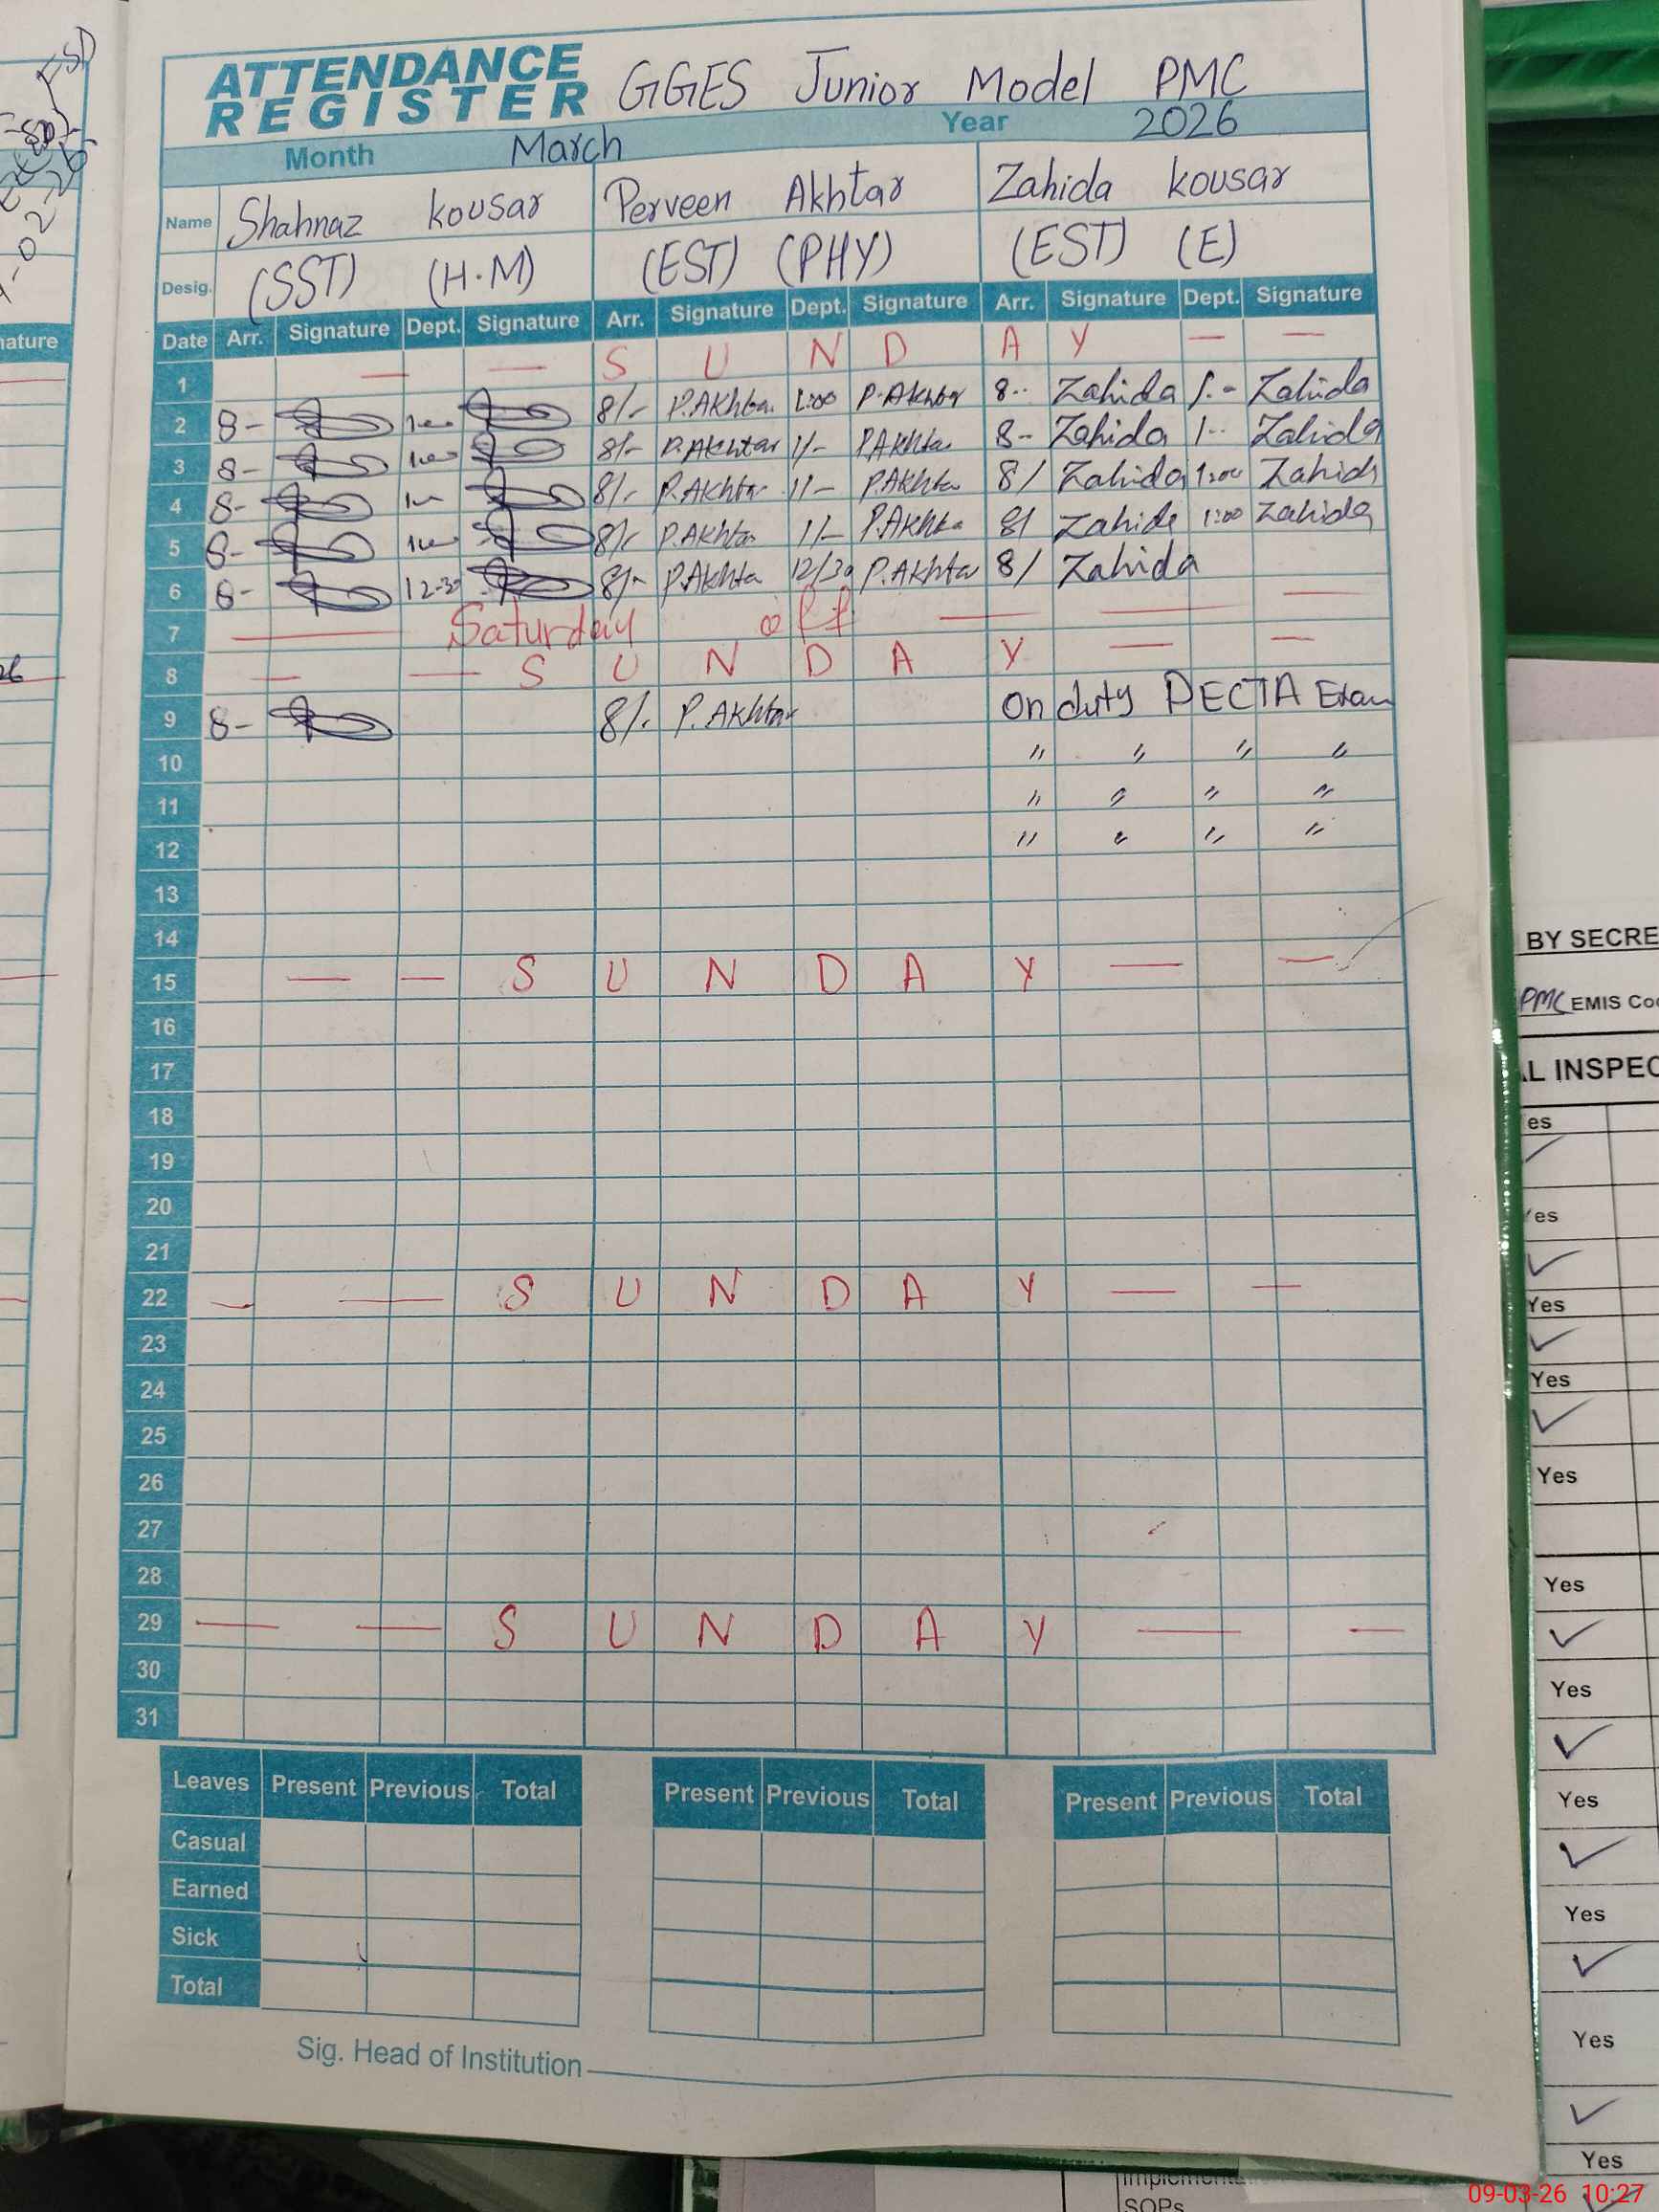 ATTENDANCE REGISTER GGES Junior Model PMC
Month March Year 2026
Name Shahnaz kousar Perveen Akhtar Zahida kousar
Desig. (SST) (H.M) (EST) (PHY) (EST) (E)
Date Arr. Signature Dept. Signature Arr. Signature Dept. Signature Arr. Signature Dept. Signature
1 — — S U N D A Y — —
2 8- 8/- P.Akhtar 1:00 P.Akhtar 8-- Zahida Zahida
3 8- 8/- P.Akhtar 1/- P.Akhta 8- Zahida 1-- Zahida
4 8- 8/- P.Akhtar 1/- P.Akhta 8/ Zahida 1:00 Zahida
5 8- 8/- P.Akhtar 1/- P.Akhta 8/ Zahida 1:00 Zahida
6 8- 12-30 8/- P.Akhta 12/30 P.Akhtar 8/ Zahida
7 — Saturday off — — —
8 — — S U N D A Y — —
9 8- 8/- P.Akhtar On duty PECTA Exam
10 〃 〃 〃 〃
11 〃 〃 〃 〃
12 〃 〃 〃 〃
13
14
15 — — S U N D A Y — —
16
17
18
19
20
21
22 — — S U N D A Y — —
23
24
25
26
27
28
29 — — S U N D A Y — —
30
31
Leaves Present Previous Total Present Previous Total Present Previous Total
Casual
Earned
Sick
Total
Sig. Head of Institution
nature
26
BY SECRE
PMC EMIS Co
AL INSPEC
es
Yes
Yes
Yes
Yes
Yes
Yes
Yes
Yes
Yes
Yes
SOPs
09-03-26 10:27